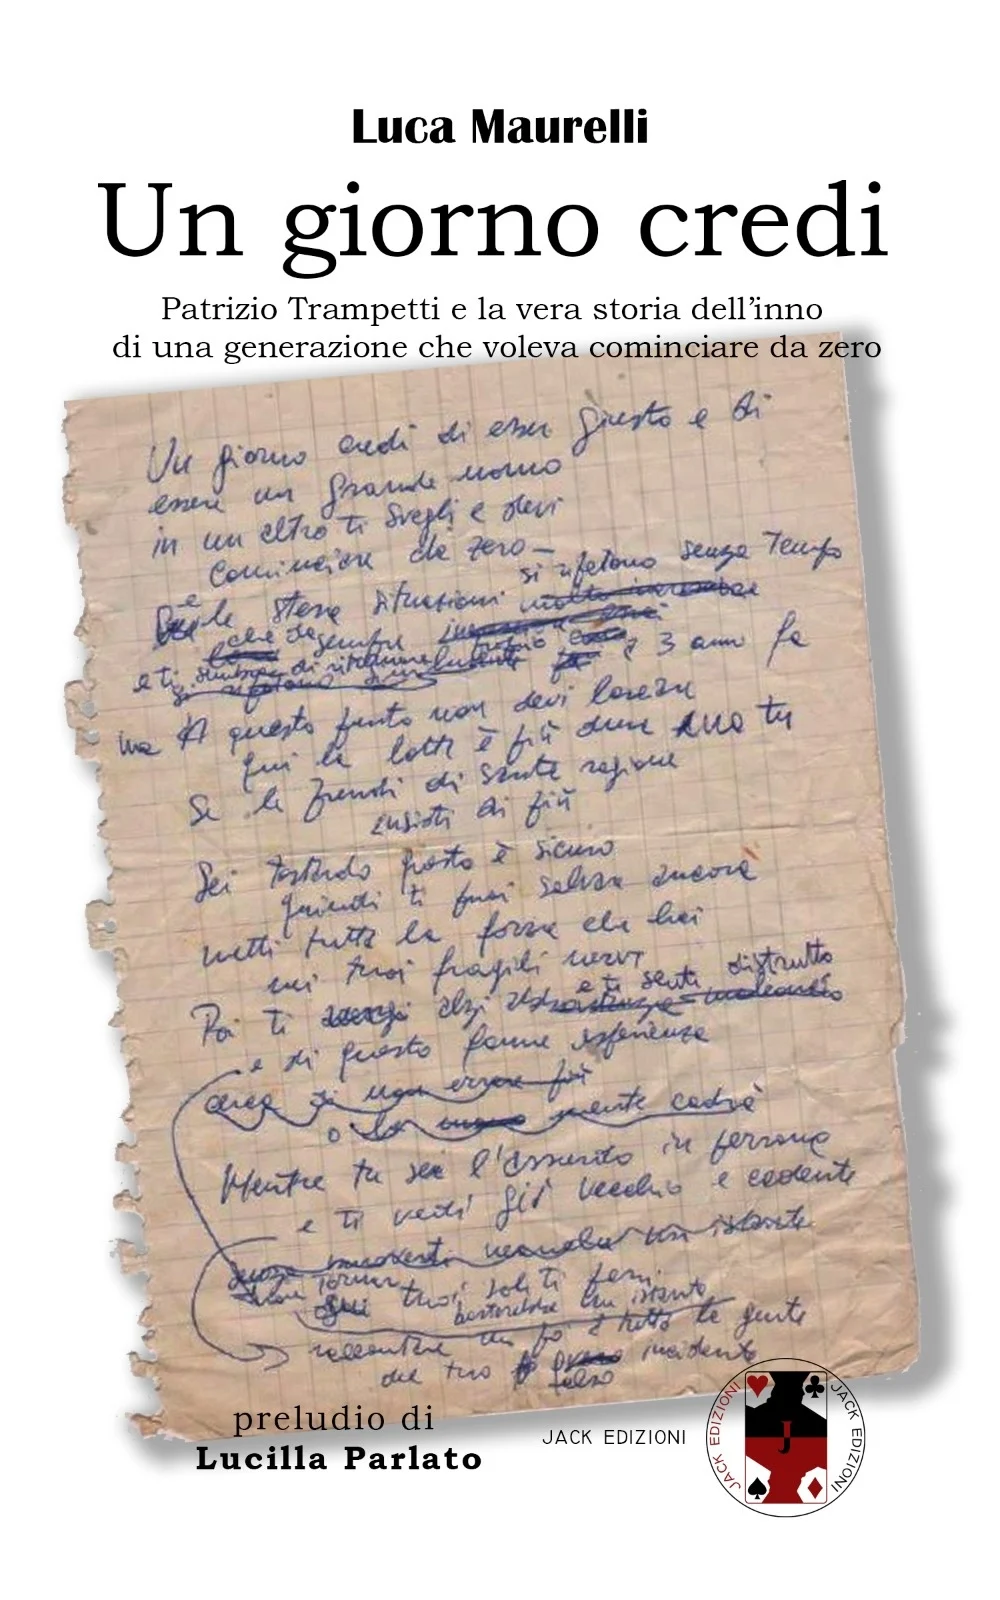 Luca Maurelli
Un giorno credi
Patrizio Trampetti e la vera storia dell'inno
di una generazione che voleva cominciare da zero
Un giorno credi di esser giusto e di
essere un grande uomo
in un altro ti svegli e devi
Cominciare da zero —
si ripetono senza Tempo
e le stesse situazioni
che da sempre
e ti
3 anni fa
ma A questo punto non devi lasciare
qui la lotta è più dura ma tu
Se le prendi di santa ragione
insisti di più
Sei testardo questo è sicuro
quindi ti puoi salvare ancora
metti tutta la forza che hai
nei tuoi fragili nervi
e ti senti distrutto
Poi ti alzi
e di questo fanne esperienza
cerca di non errare più
o la mente cadrà
Mentre tu sei l'assurdo in persona
e ti vedi già vecchio e cadente
un istante
tuoi soli ti
basterebbe un istante
raccontare un po' a tutta la gente
del tuo falso incidente
preludio di
Lucilla Parlato
JACK EDIZIONI
JACK EDIZIONI
JACK EDIZIONI
J